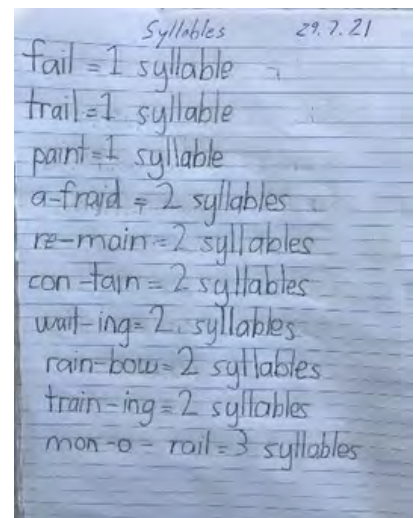 Syllables 29.7.21
fail = 1 syllable
trail = 1 syllable
paint = 1 syllable
a-fraid = 2 syllables
re-main = 2 syllables
con-tain = 2 syllables
wait-ing = 2 syllables
rain-bow = 2 syllables
train-ing = 2 syllables
mon-o-rail = 3 syllables